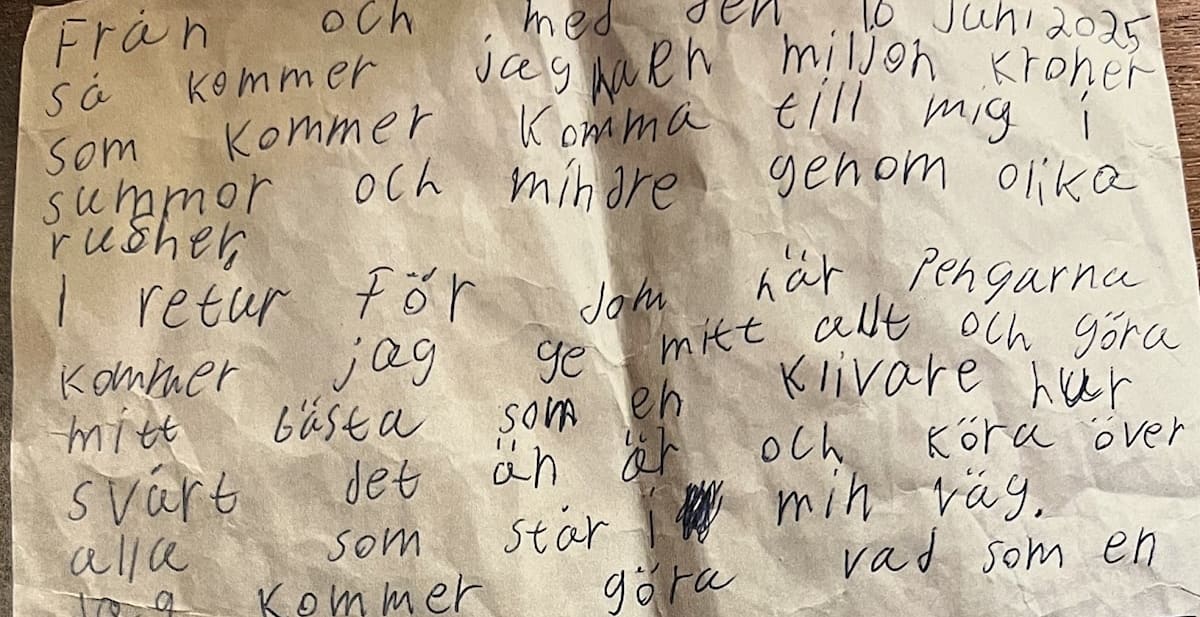 Från och med den 16 Juni 2025
så kommer jag ha en miljon kroner
som kommer komma till mig i
summor och mindre genom olika
rusher,
I retur för dom här pengarna
kommer jag ge mitt allt och göra
mitt bästa som en klivare hur
svårt det än är och köra över
alla som står i min väg.
jag kommer göra vad som en